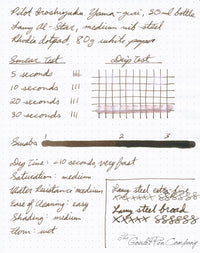 Pilot Iroshizuku Yama-guri, 50 ml bottle
Lamy Al-Star, medium nib steel
Rhodia dotpad, 80g white paper
Smear Test
Drip Test
5 seconds
10 seconds
20 seconds
30 seconds
Swabs 1 2 3
Dry Time: ~10 seconds, very fast
Saturation: medium
Water Resistance: medium
Ease of Cleaning: easy
Shading: medium
Flow: wet
Lamy steel extra-fine
Lamy steel broad
The Goulet Pen Company